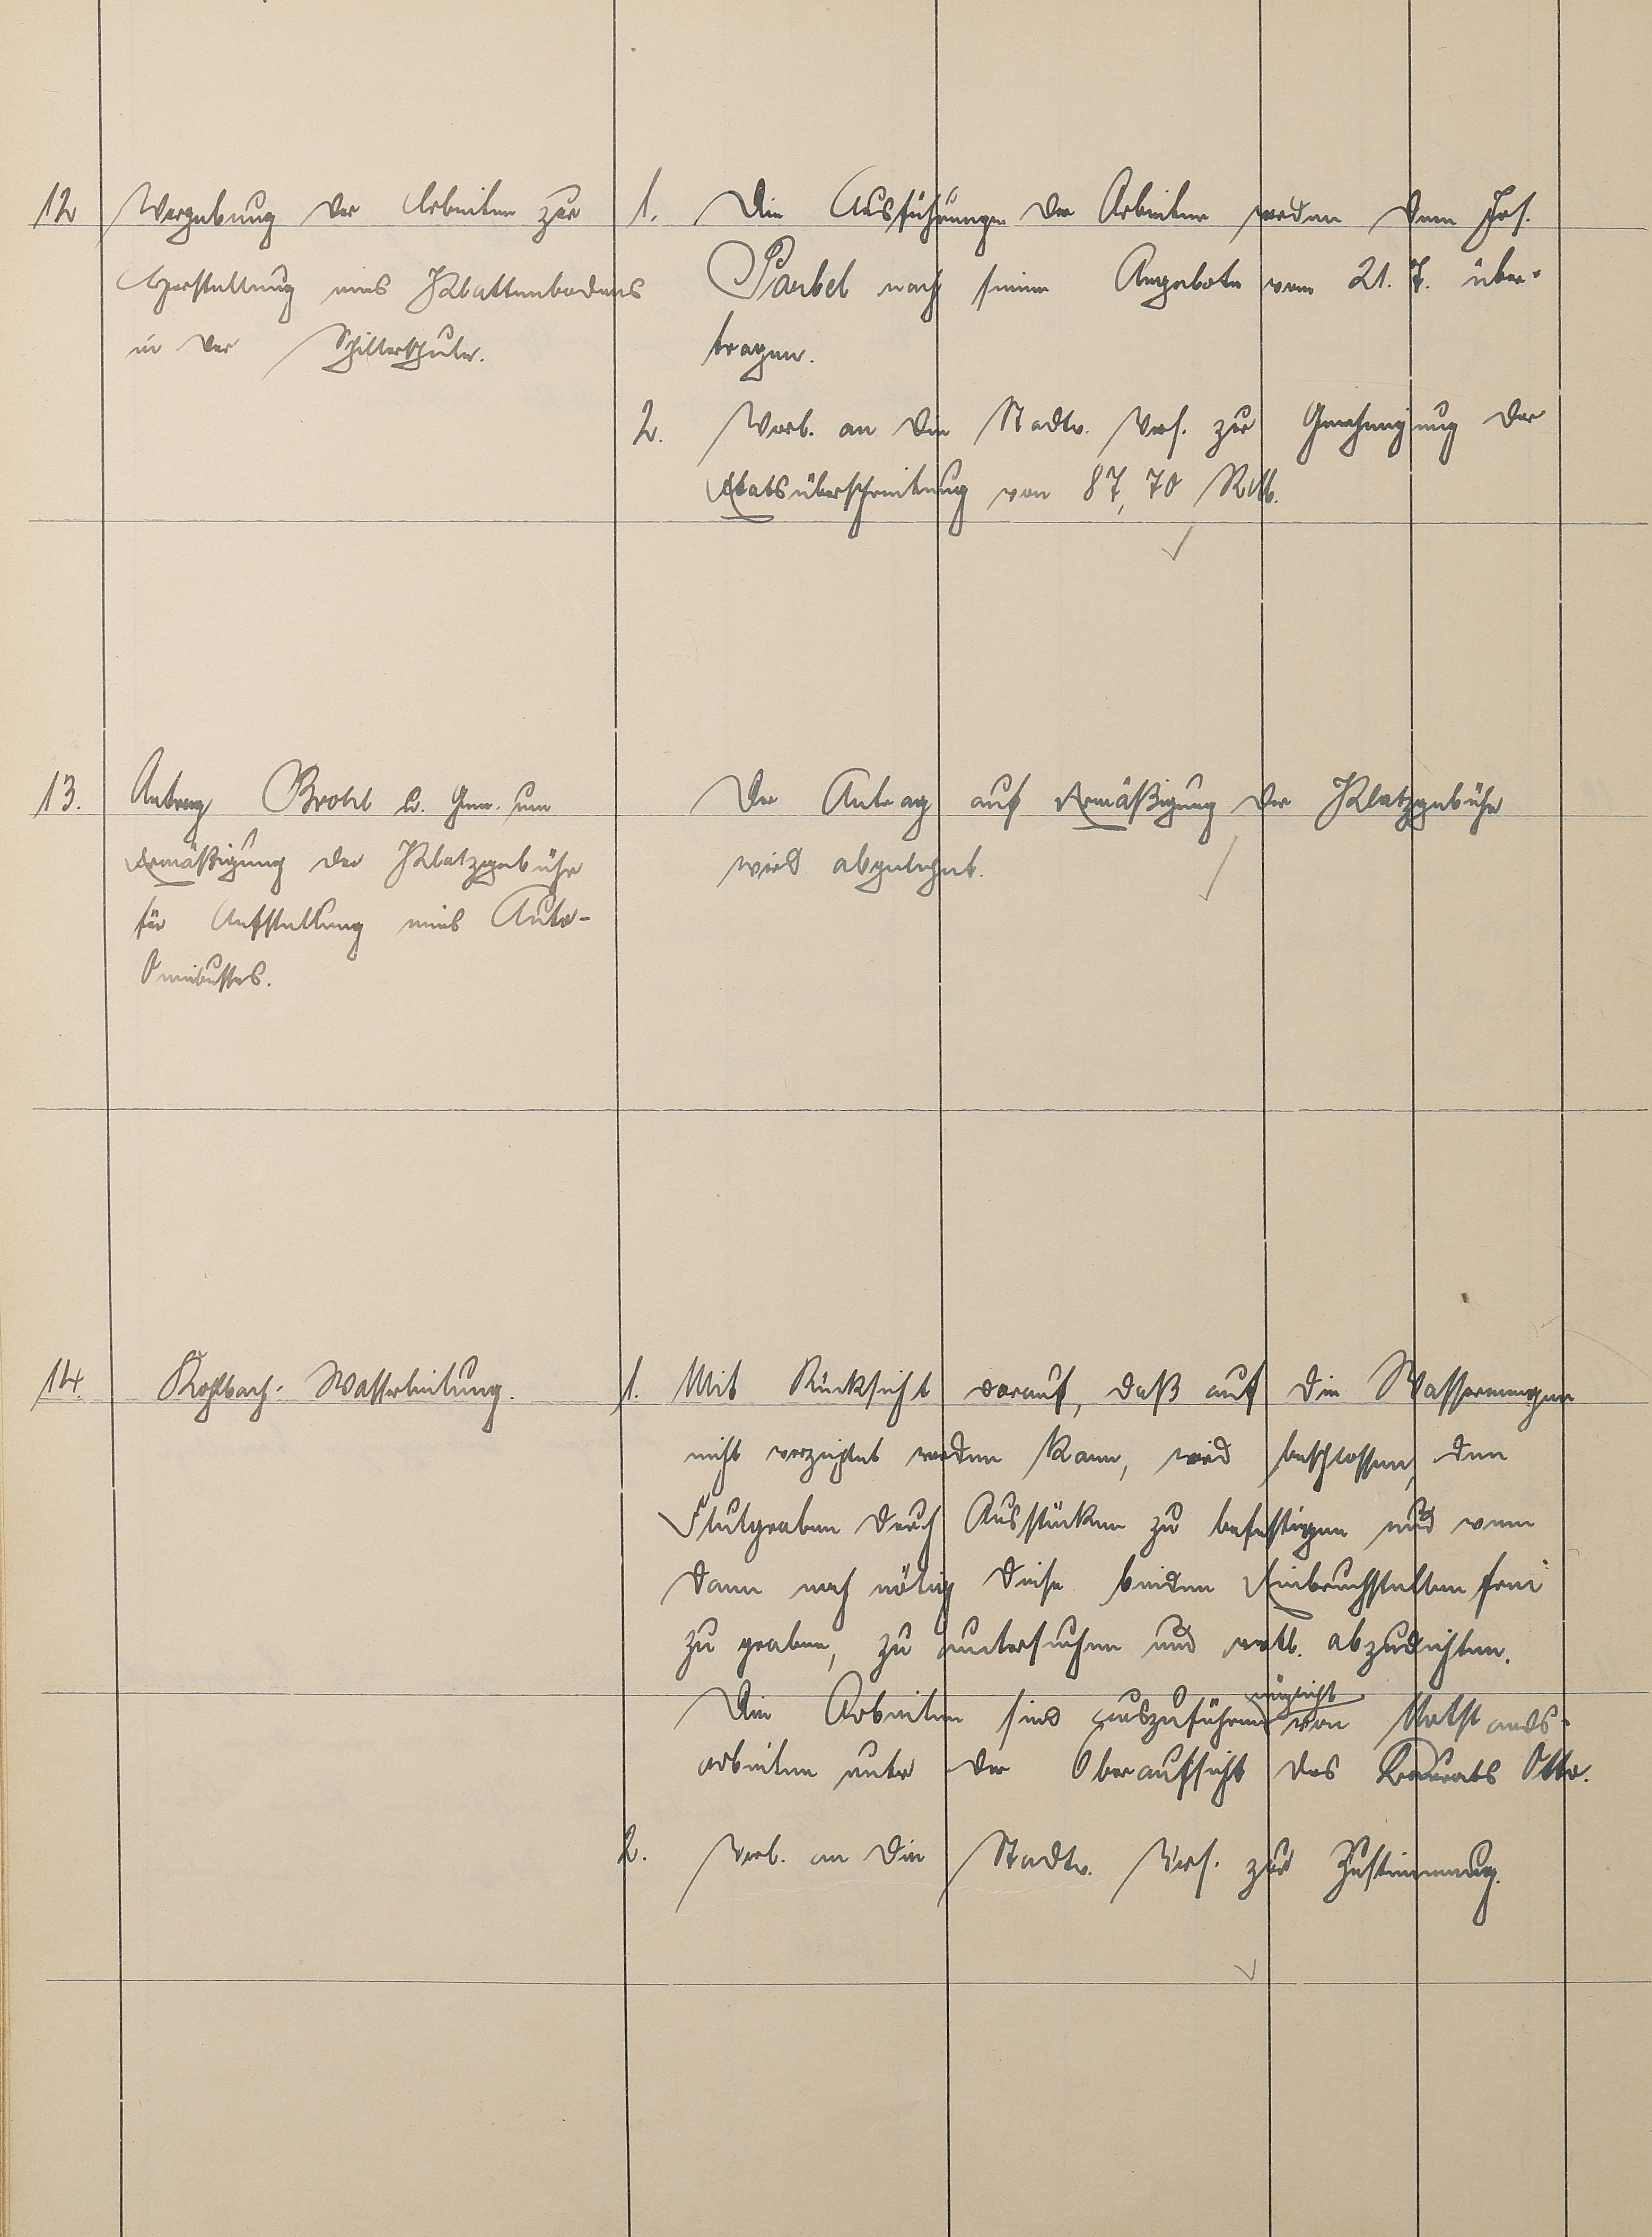 12
Vergebung der Arbeiten zur
Herstellung eines Plattenbodens
in der Schillerschule.
1. Die Ausführungen der Arbeiten werden dem Jos.
Parbel nach seinem Angebote vom 21. 7. über-
tragen.
2. Vorl. an die Stadtv. Vers. zur Genehmigung der
Etatsüberschreitung von 87,70 RM.
13.
Antrag Brohl u. Gen. um
Ermäßigung der Platzgebühr
für Aufstellung eines Auto-
Omnibusses.
Der Antrag auf Ermäßigung der Platzgebühr
wird abgelehnt.
14.
Kohlbach-Wasserleitung.
1. Mit Rücksicht darauf, daß auf die Wassermengen
nicht verzichtet werden kann, wird beschlossen, den
Flutgraben durch Ausstücken zu befestigen und wenn
dann noch nötig diese beiden Einbruchstellen frei
zu graben, zu untersuchen und evtl. abzudichten.
Die Arbeiten sind auszuführen möglichst von Notstands-
arbeiten unter der Oberaufsicht des Baurats Otto.
2. Vorl. an die Stadtv. Vers. zur Zustimmung.